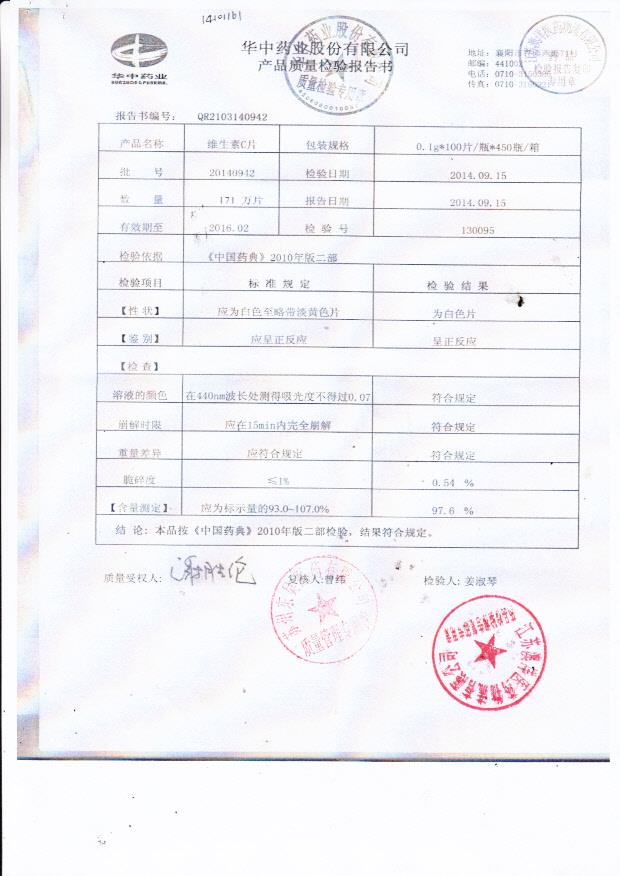 14101161
华中药业
华中药业股份有限公司
产品质量检验报告书
邮编：
电话：0710-
传真：0710-
质量检验专用章
报告书编号： QR2103140942
产品名称 维生素C片 包装规格 0.1g*100片/瓶*450瓶/箱
批 号 20140942 检验日期 2014.09.15
数 量 171 万片 报告日期 2014.09.15
有效期至 2016.02 检 验 号 130095
检验依据 《中国药典》2010年版二部
检验项目 标 准 规 定 检 验 结 果
【性 状】 应为白色至略带淡黄色片 为白色片
【鉴 别】 应呈正反应 呈正反应
【检 查】
溶液的颜色 在440nm波长处测得吸光度不得过0.07 符合规定
崩解时限 应在15min内完全崩解 符合规定
重量差异 应符合规定 符合规定
脆碎度 ≤1% 0.54 %
【含量测定】 应为标示量的93.0~107.0% 97.6 %
结 论：本品按《中国药典》2010年版二部检验，结果符合规定。
质量受权人： 复核人：曾纬 检验人：姜淑琴